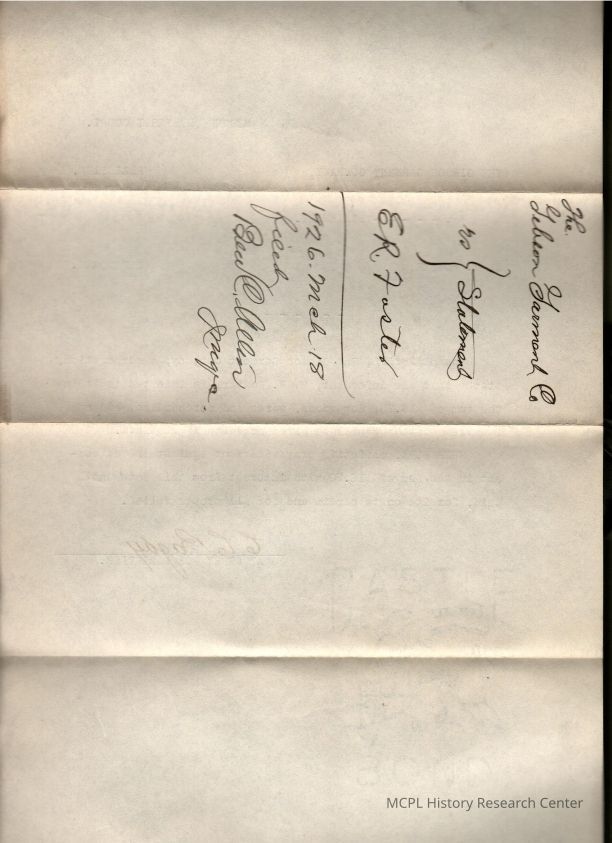 The
Gibson Garment Co
vs } Statement
E.R. Foster
1926. Mch 18
filed
Ben C. Allin
Judge.
MCPL History Research Center